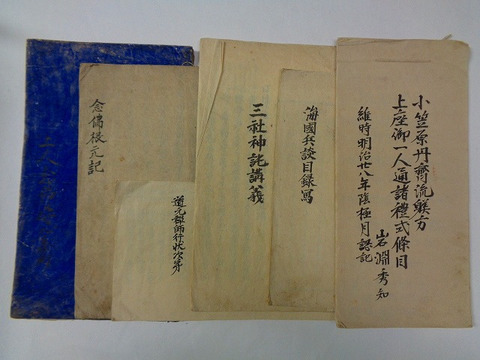 小笠原丹齊流躾方
上座御一人通諸禮式條目
維時明治廿八年陰極月認記
岩淵秀知
海國兵談目録寫
三社神託講義
道元禪師行状次第
念佛根元記